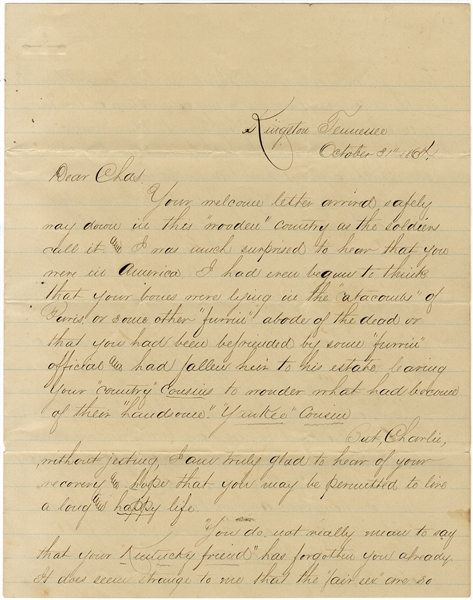 Kingston Tennessee
October 31st 186
Dear Chas
Your welcome letter arrived safely
way down in this "wooden" country as the soldiers
call it and I was much surprised to hear that you
were in America I had even begun to think
that your bones were lying in the "catacombs" of
Paris, or some other "furrin" abode of the dead or
that you had been befriended by some "furrin"
official and had fallen heir to his estate leaving
your "country" cousins to wonder what had become
of their handsome "Yankee" cousin
But, Charlie,
without jesting, I am truly glad to hear of your
recovery and hope that you may be permitted to live
a long and happy life.
"You do not really mean to say
that your "Kentucky friend" has forgotten you already.
It does seem strange to me that the "fair sex" are so